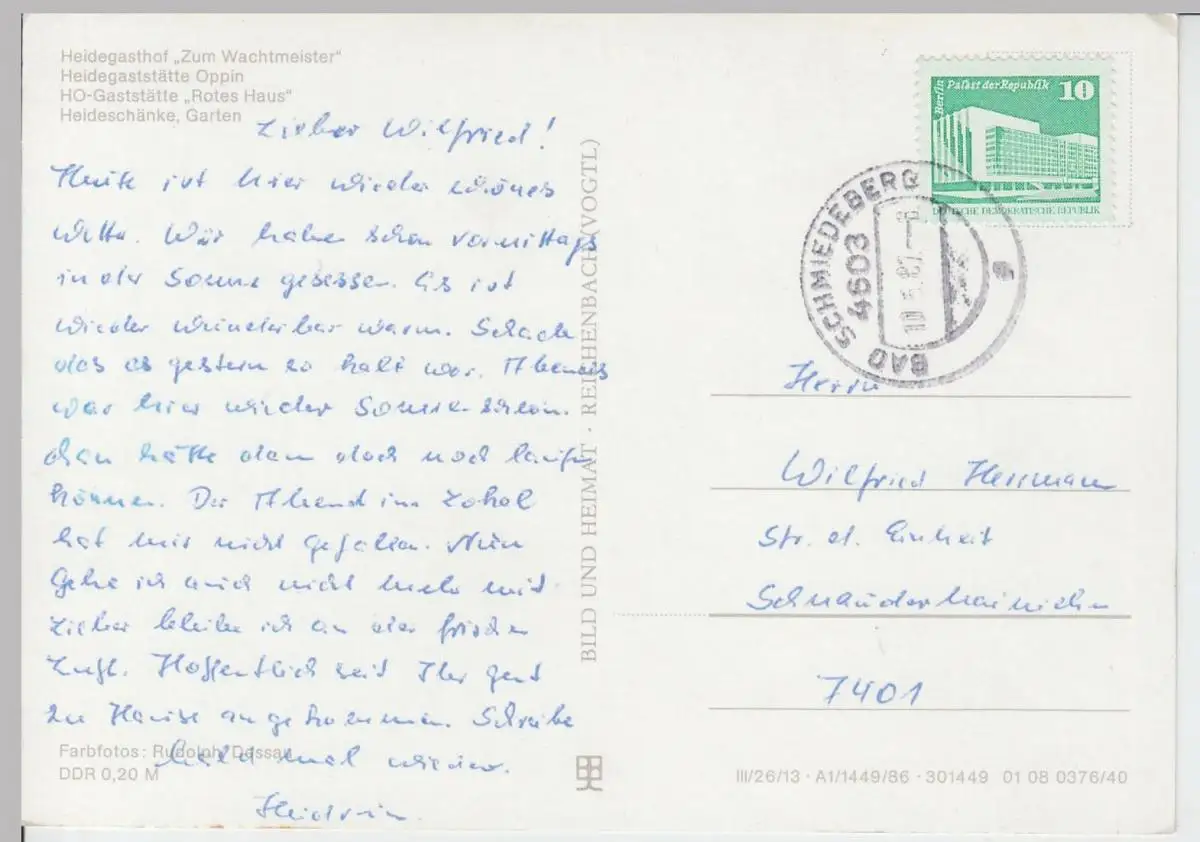 Heidegasthof „Zum Wachtmeister"
Heidegaststätte Oppin
HO-Gaststätte „Rotes Haus"
Heideschänke, Garten
Lieber Wilfried!
Heute ist hier wieder schönes
Wetter. Wir haben schon vormittags
in der Sonne gesessen. Es ist
wieder wunderbar warm. Schade
das es gestern so kalt war. Abends
war hier wieder Sonnenschein.
Man hätte dann doch noch laufen
können. Der Abend im Lokal
hat mir nicht gefallen. Nun
gehe ich auch nicht mehr mit
Lieber bleibe ich an der frischen
Luft. Hoffentlich seit Ihr gut
zu Hause angekommen. Schreibe
bald mal wieder.
Heidrun.
Farbfotos: Rudolph, Dessau
DDR 0,20 M
BILD UND HEIMAT · REICHENBACH (VOGTL)
Berlin Palast der Republik 10
DEUTSCHE DEMOKRATISCHE REPUBLIK
BAD SCHMIEDEBERG
4603
a
Herrn
Wilfried Herrmann
Str. d. Einheit
Schnauderhainichen
7401
III/26/13 · A1/1449/86 · 301449 01 08 0376/40